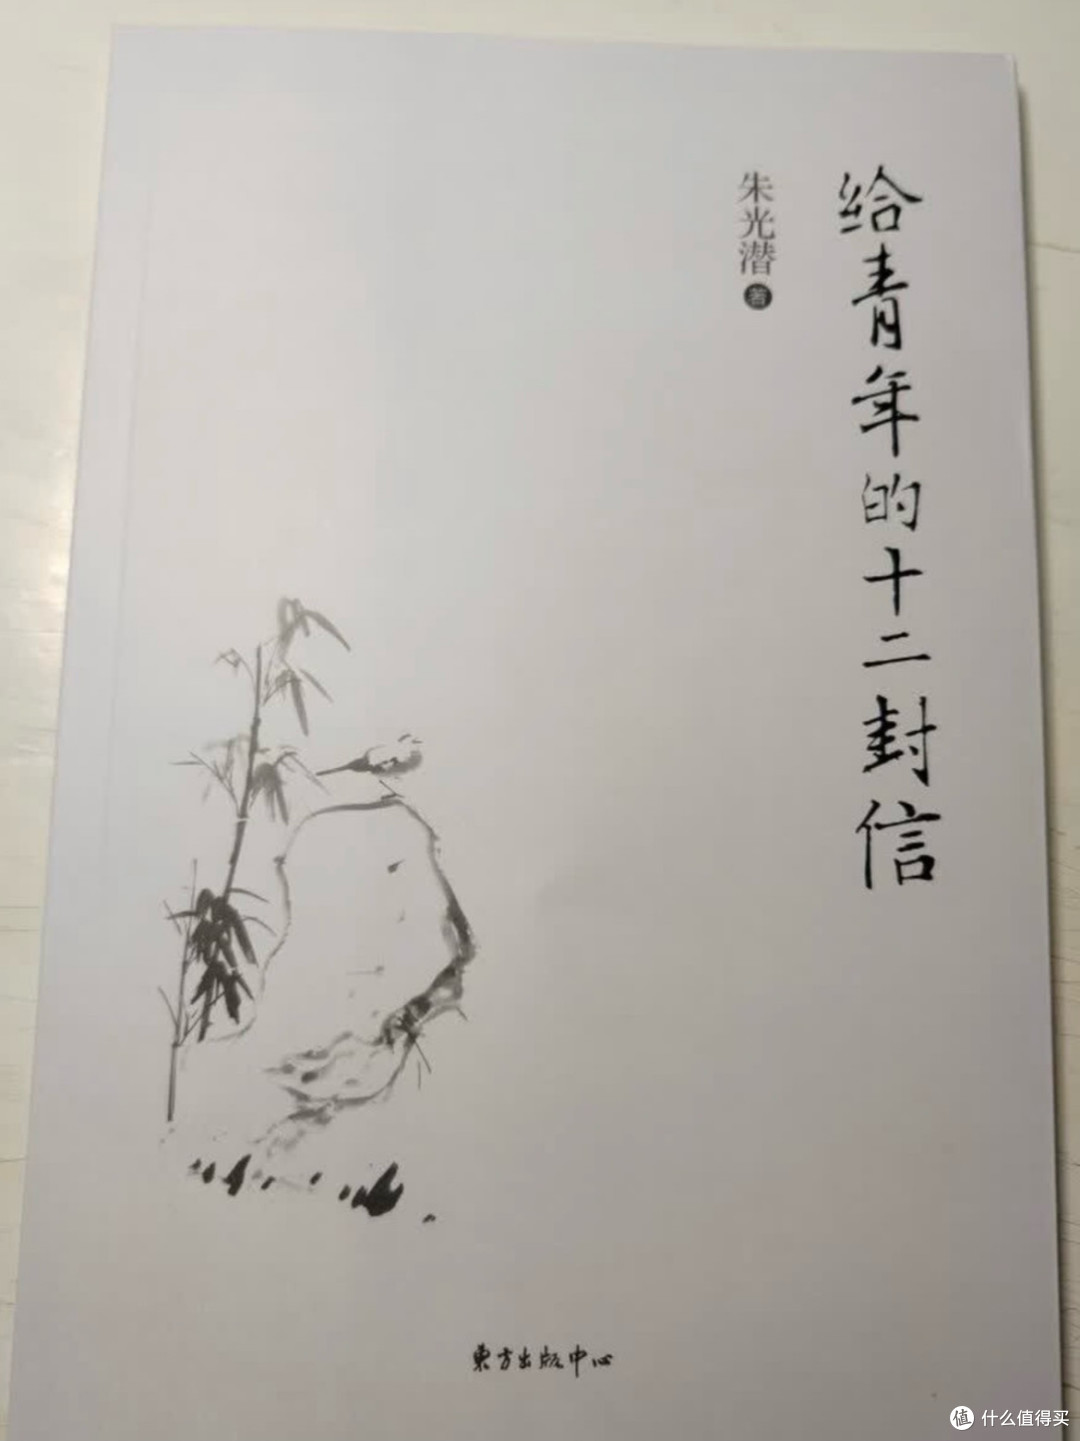 给青年的十二封信
朱光潜 著
东方出版中心
值 什么值得买